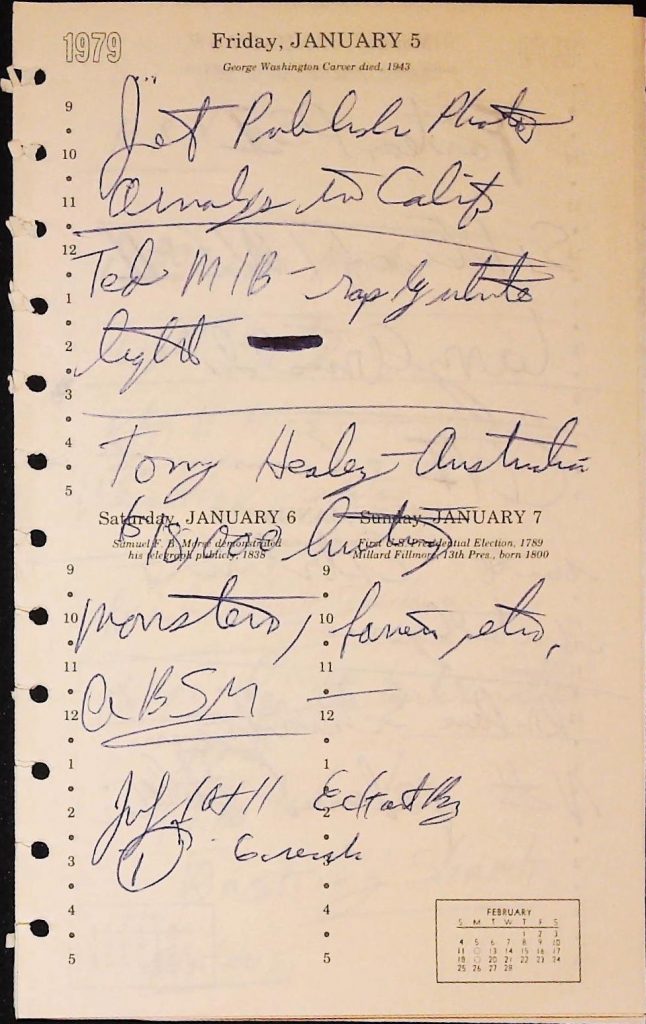 1979
Friday, JANUARY 5
George Washington Carver died, 1943
Jet Publish Photos
in Calif
Ted MIB - rap by white
light —
Tony Healey - Australia
Saturday, JANUARY 6
Samuel F. B. Morse demonstrated
his telegraph publicly, 1838
Sunday, JANUARY 7
First U.S. Presidential Election, 1789
Millard Fillmore, 13th Pres., born 1800
18,000
monsters, etc,
a BSM —
9
10
11
12
1
2
3
4
5
9
10
11
12
1
2
3
4
5
9
10
11
12
1
2
3
4
5
FEBRUARY
S M T W T F S
1 2 3
4 5 6 7 8 9 10
11 13 14 15 16 17
18 20 21 22 23 24
25 26 27 28